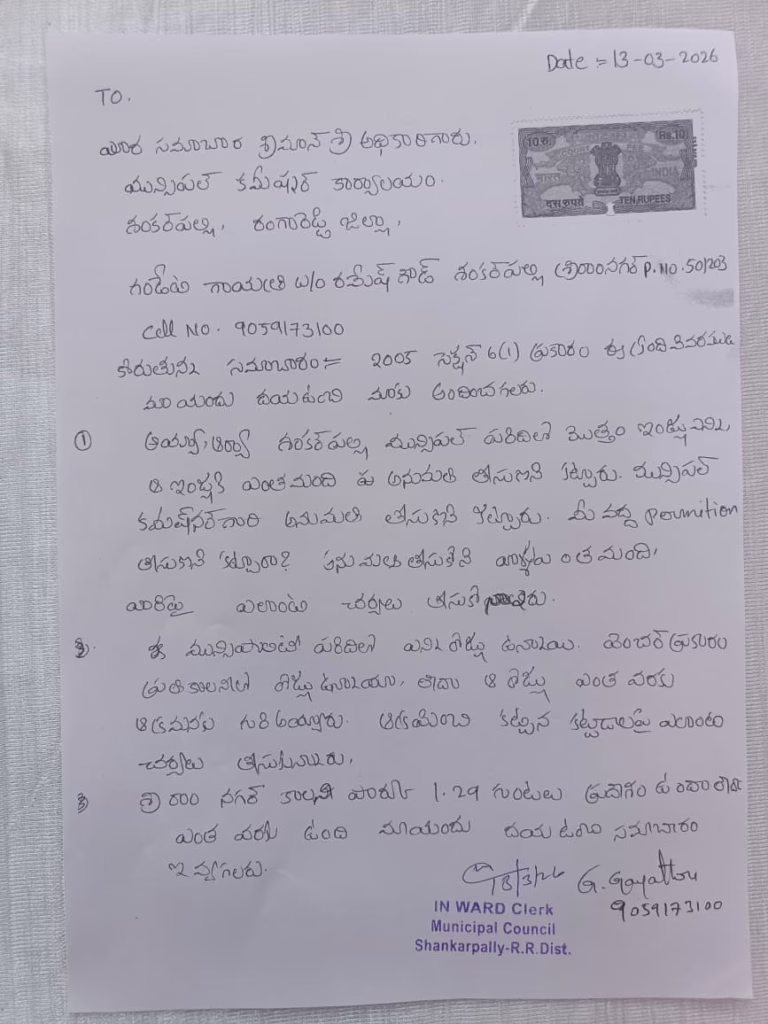 Date := 13-03-2026
TO.
పౌర సమాచార శ్రీమాన్ శ్రీ అధికారిగారు.
మున్సిపల్ కమీషనర్ కార్యాలయం.
శంకర్‌పల్లి, రంగారెడ్డి జిల్లా,
10 रु. Rs.10
भारत INDIA
दस रुपये TEN RUPEES
గండేటి గాయత్రి W/o రమేష్ గౌడ్ శంకర్‌పల్లి శ్రీరాంనగర్ P.NO.50/203
Cell NO. 9059173100
కోరుతున్న సమాచారం:= 2005 సెక్షన్ 6(1) ప్రకారం ఈ క్రింది వివరములు
మా యందు దయ ఉంచి మాకు అందించగలరు.
① అయ్యా, శంకర్‌పల్లి మున్సిపల్ పరిదిలో మొత్తం ఇండ్లు ఎన్ని,
ఆ ఇండ్లకి ఎంతమంది అనుమతి తీసుకొని కట్టారు. మున్సిపల్
కమీషనర్ గారి అనుమతి తీసుకొని కట్టారు. మీ వద్ద permition
తీసుకొని కట్టారా? అనుమతి తీసుకోని వాళ్ళు ఎంత మంది,
వారిపై ఎలాంటి చర్యలు తీసుకొన్నారు.
2. ఈ మున్సిపాలిటీ పరిదిలో ఎన్ని రోడ్లు ఉన్నాయి. వెంచర్ ప్రకారం
ప్రతి కాలనీలో రోడ్లు ఉన్నాయా, లేదా ఆ రోడ్లు ఎంత వరకు
ఆక్రమణకు గురి అయ్యారు. ఆక్రమించి కట్టిన కట్టడాలపై ఎలాంటి
చర్యలు తీసుకున్నారు,
3 శ్రీ రాం నగర్ కాలనీ పార్కు 1.29 గుంటలు ప్రకారం ఉందా లేదా
ఎంత వరకు ఉంది మాయందు దయ ఉంచి సమాచారం
ఇవ్వగలరు.
13/3/26 G. Gayathri
9059173100
IN WARD Clerk
Municipal Council
Shankarpally-R.R.Dist.